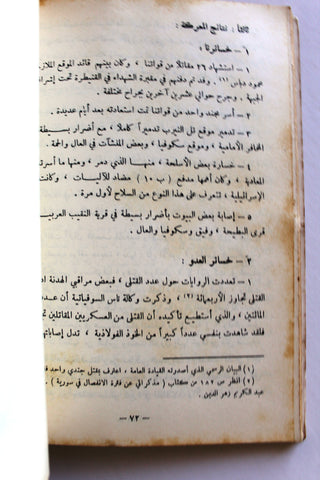 ثالثاً : نتائج المعركة :
١ – خسائرنا :
١ – استشهاد ٢٦ مقاتلاً من قواتنا ، وكان بينهم قائد الموقع الملازم
محمود دباس (١) . وقد تم دفنهم في مقبرة الشهداء في القنيطرة تحت إشراف
الجبهة . وجرح حوالي عشرين آخرين بجراح مختلفة .
٢ – أسر مجند واحد من قواتنا تمت استعادته بعد أيام عديدة .
٣ – تدمير موقع تل النيرب تدميراً كاملاً ، مع أضرار بسيطة
المخافر الأمامية ، وموقع سكوفيا ، وبعض المنشآت في العال والحمة .
٤ – خسارة بعض الأسلحة ، منها الذي دمر ، ومنها ما أسرته
المعادية ، وكان أهمها مدفع ( ب ١٠ ) مضاد للآليات ، وكانت
الإسرائيلية ، تتعرف على هذا النوع من السلاح لأول مرة .
٥ – إصابة بعض البيوت بأضرار بسيطة في قرية النقيب العربية
قرى البطيحة ، وفيق وسكوفيا والعال .
٢ – خسائر العدو :
١ – تعددت الروايات حول عدد القتلى ، فبعض مراقبي الهدنة
القتلى تجاوز الأربعمائة (٢) ، وذكرت وكالة تاس السوفياتية أن
المائتين ، والذي أستطيع تأكيده أن القتلى من العسكريين المقاتلين
فلقد شاهدت بنفسي عدداً كبيراً من الخوذ الفولاذية ، تدل إصاباتها
(١) البيان الرسمي الذي أصدرته القيادة العامة ، اعترف بقتل جندي واحد
(٢) انظر ص ١٨٢ من كتاب ( مذكراتي عن فترة الانفصال في سورية )
عبد الكريم زهر الدين .
– ٧٢ –